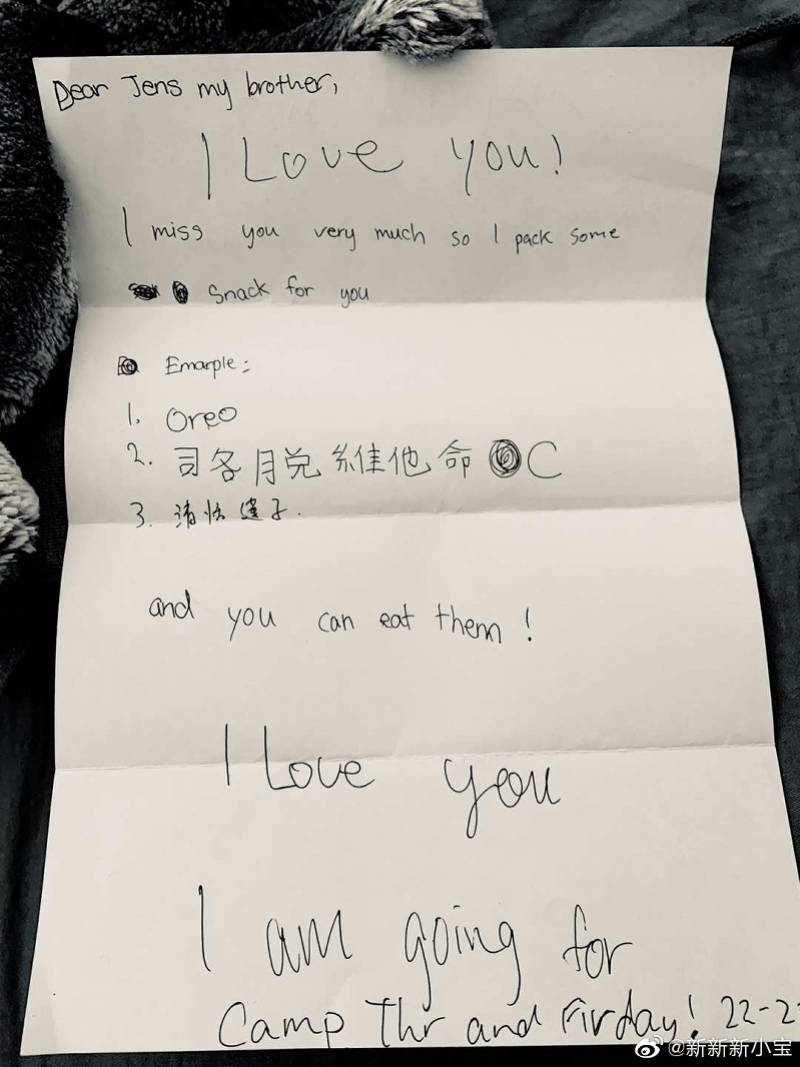 Dear Jens my brother,
I Love you!
I miss you very much so I pack some
Snack for you
Emarple:
1. Oreo
2. 司各月兑維他命 C
3. 子.
and you can eat them!
I Love you
I am going for
Camp Thr and Firday! 22-2
@新新新小宝